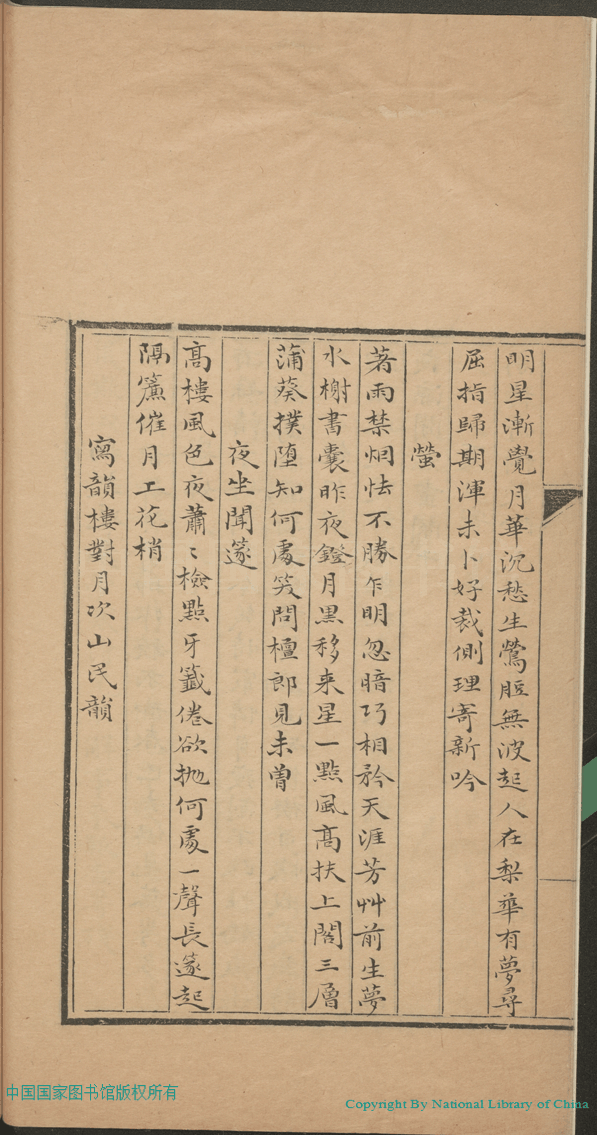 明星漸覺月華沉愁生鶯脰無波起人在梨華有夢尋
屈指歸期渾未卜好裁側理寄新吟
螢
著雨禁烟怯不勝乍明忽暗巧相矜天涯芳艸前生夢
水榭書囊昨夜鐙月黑移来星一點風高扶上閣三層
蒲葵撲堕知何處笑問檀郎見未曽
夜坐聞篴
高樓風色夜蕭〻檢點牙籤倦欲抛何處一聲長篴起
隔簾催月上花梢
寫韻樓對月次山民韻
中国国家图书馆版权所有
Copyright By National Library of China